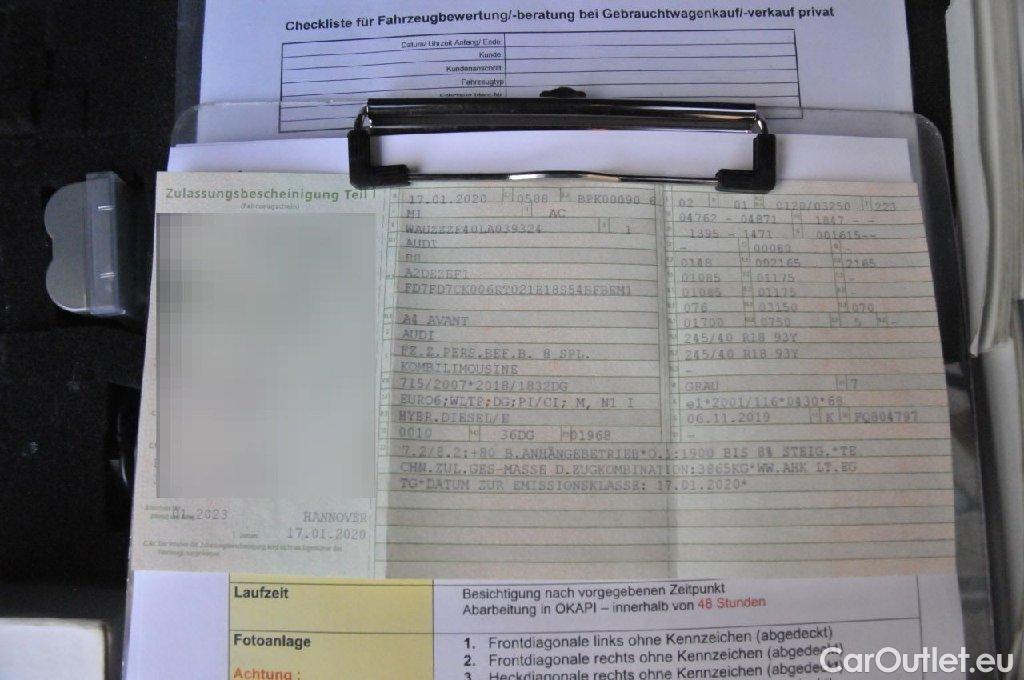 Checkliste für Fahrzeugbewertung/-beratung bei Gebrauchtwagenkauf/-verkauf privat
Datum/ Uhrzeit Anfang/ Ende
Kunde
Kundenanschrift
Fahrzeugtyp
Zulassungsbescheinigung Teil I
(Fahrzeugschein)
17.01.2020 0588 BPK00090 6
M1 AC
WAUZZZF40LA039324 1
AUDI
B8
A2DEZEF1
FD7FD7CK006RT021E18S54BFBEM1
A4 AVANT
AUDI
FZ.Z.PERS.BEF.B. 8 SPL.
KOMBILIMOUSINE
715/2007*2018/1832DG
EURO6;WLTP;DG;PI/CI; M, N1 I
HYBR.DIESEL/E
0010 36DG 01968
02 01 0120/03250 223
04762 - 04871 1847 --
1395 - 1471 001615--
- 00080 -
0148 002165 2165
01085 01175 -
01085 01175 -
076 03150 070
01700 0750 - -
245/40 R18 93Y
245/40 R18 93Y
-
GRAU 7
e1*2001/116*0430*68
06.11.2019 K PQ804797
-
7.2/8.2:+80 B.ANHÄNGEBETRIEB*O.1:1900 BIS 8% STEIG.*TE
CHN.ZUL.GES-MASSE D.ZUGKOMBINATION:3865KG*WW.AHK LT.EG
TG*DATUM ZUR EMISSIONSKLASSE: 17.01.2020*
01.2023
HANNOVER
17.01.2020
Laufzeit
Besichtigung nach vorgegebenen Zeitpunkt
Abarbeitung in OKAPI – innerhalb von 48 Stunden
Fotoanlage
1. Frontdiagonale links ohne Kennzeichen (abgedeckt)
2. Frontdiagonale rechts ohne Kennzeichen (abgedeckt)
Achtung :
3. Heckdiagonale rechts ohne Kennzeichen (abgedeckt)
CarOutlet.eu